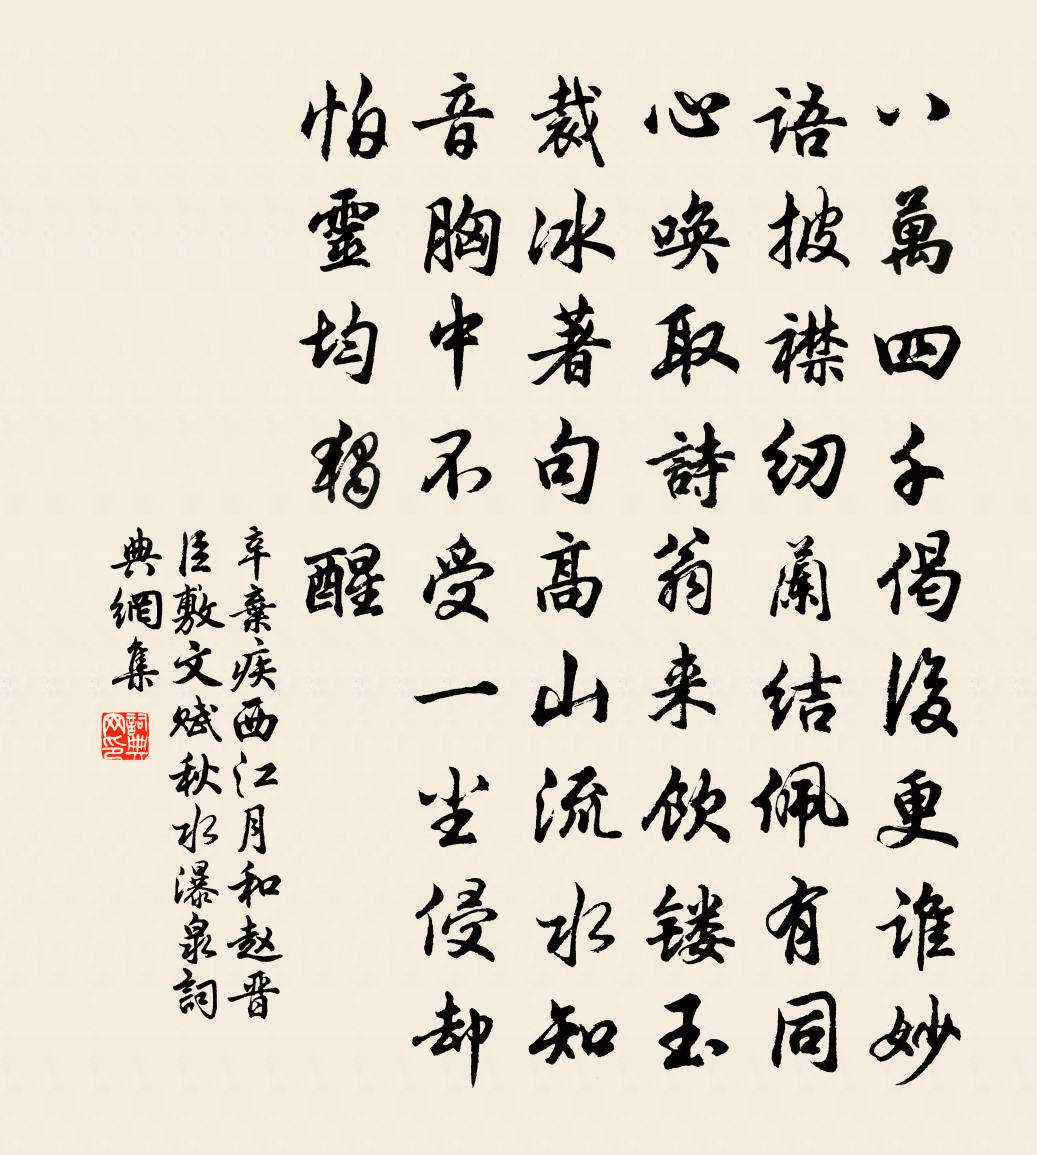 八萬四千偈後更谁妙
語披襟纫蘭结佩有同
心唤取詩翁来饮镂玉
裁冰著句高山流水知
音胸中不受一尘侵却
怕靈均獨醒
辛棄疾西江月和赵晋
臣敷文赋秋水瀑泉詞
典網集
詞典网印